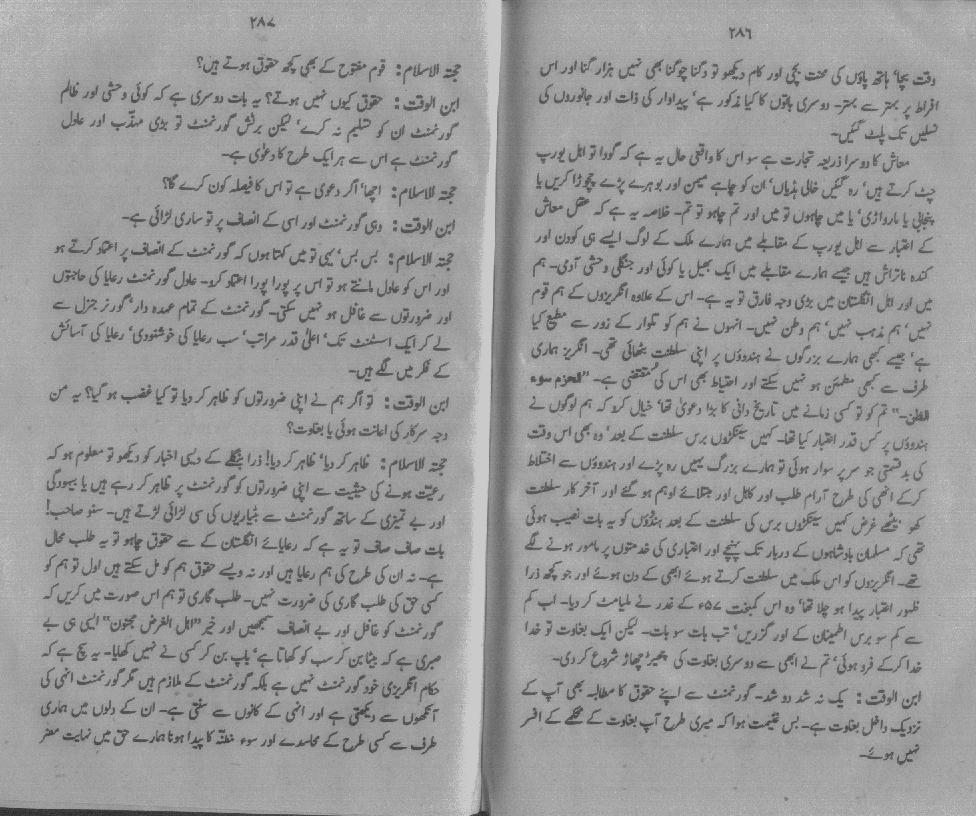 ۲۸۶
وقت بچا‘ ہاتھ پاؤں کی محنت بچی اور کام دیکھو تو دگنا چوگنا بھی نہیں ہزار گنا اور اس
افراط پر بہتر سے بہتر۔ دوسری باتوں کا کیا مذکور ہے‘ پیداوار کی ذات اور جانوروں کی
نسلیں تک پلٹ گئیں۔
معاش کا دوسرا ذریعہ تجارت ہے سو اس کا واقعی حال یہ ہے کہ گودا تو اہل یورپ
چٹ کرتے ہیں‘ رہ گئیں خالی ہڈیاں‘ ان کو چاہے میمن اور بوہرے پڑے چچوڑا کریں یا
پنجابی یا مارواڑی‘ یا میں چاہوں تو میں اور تم چاہو تو تم۔ خلاصہ یہ ہے کہ عقل معاش
کے اعتبار سے اہل یورپ کے مقابلے میں ہمارے ملک کے لوگ ایسے ہی کودن اور
کندہ ناتراش ہیں جیسے ہمارے مقابلے میں ایک بھیل یا کوئی اور جنگلی وحشی آدمی۔ ہم
میں اور اہل انگلستان میں بڑی وجہ فارق تو یہ ہے۔ اس کے علاوہ انگریزوں کے ہم قوم
نہیں‘ ہم مذہب نہیں‘ ہم وطن نہیں۔ انہوں نے ہم کو تلوار کے زور سے مطیع کیا
ہے‘ جیسے کبھی ہمارے بزرگوں نے ہندوؤں پر اپنی سلطنت بٹھائی تھی۔ انگریز ہماری
طرف سے کبھی مطمئن ہو نہیں سکتے اور احتیاط بھی اس کی مقتضی ہے۔ ”الحزم سوء
الظن۔“ تم کو تو کسی زمانے میں تاریخ دانی کا بڑا دعویٰ تھا‘ خیال کرو کہ ہم لوگوں نے
ہندوؤں پر کس قدر اعتبار کیا تھا۔ کہیں سینکڑوں برس سلطنت کے بعد‘ وہ بھی اس وقت
کی بدقسمتی جو سر پر سوار ہوئی تو ہمارے بزرگ یہیں رہ پڑے اور ہندوؤں سے اختلاط
کرکے انھی کی طرح آرام طلب اور کاہل اور مبتلائے اوہم ہو گئے اور آخر کار سلطنت
کھو بیٹھے غرض کہیں سینکڑوں برس کی سلطنت کے بعد ہندوؤں کو یہ بات نصیب ہوئی
تھی کہ مسلمان بادشاہوں کے دربار تک پہنچے اور اعتباری کی خدمتوں پر مامور ہونے لگے
تھے۔ انگریزوں کو اس ملک میں سلطنت کرتے ہوئے ابھی کے دن ہوئے اور جو کچھ ذرا
ظہور اعتبار پیدا ہو چلا تھا‘ وہ اس کمبخت ۵۷ء کے غدر نے ملیامٹ کر دیا۔ اب کم
سے کم سو برس اطمینان کے اور گزریں‘ تب بات سو بات۔ لیکن ایک بغاوت تو خدا
خدا کرکے فرو ہوئی‘ تم نے ابھی سے دوسری بغاوت کی چھیڑ چھاڑ شروع کر دی۔
ابن الوقت : یک نہ شد دو شد۔ گورنمنٹ سے اپنے حقوق کا مطالبہ بھی آپ کے
نزدیک داخل بغاوت ہے۔ بس غنیمت ہوا کہ میری طرح آپ بغاوت کے محکمے کے افسر
نہیں ہوئے۔
۲۸۷
حجتہ الاسلام : قوم مفتوح کے بھی کچھ حقوق ہوتے ہیں؟
ابن الوقت : حقوق کیوں نہیں ہوتے؟ یہ بات دوسری ہے کہ کوئی وحشی اور ظالم
گورنمنٹ ان کو تسلیم نہ کرے‘ لیکن برٹش گورنمنٹ تو بڑی مہذّب اور عادل
گورنمنٹ ہے اس سے ہر ایک طرح کا دعویٰ ہے۔
حجتہ الاسلام : اچھا‘ اگر دعویٰ ہے تو اس کا فیصلہ کون کرے گا؟
ابن الوقت : وہی گورنمنٹ اور اسی کے انصاف پر تو ساری لڑائی ہے۔
حجتہ الاسلام : بس بس‘ یہی تو میں کہتا ہوں کہ گورنمنٹ کے انصاف پر اعتماد کرتے ہو
اور اس کو عادل مانتے ہو تو اس پر پورا پورا اعتماد کرو۔ عادل گورنمنٹ رعایا کی حاجتوں
اور ضرورتوں سے غافل ہو نہیں سکتی۔ گورنمنٹ کے تمام عہدہ دار‘ گورنر جنرل سے
لے کر ایک اسٹنٹ تک‘ اعلیٰ قدر مراتب‘ سب رعایا کی خوشنودی‘ رعایا کی آسائش
کے فکر میں لگے ہیں۔
ابن الوقت : تو اگر ہم نے اپنی ضرورتوں کو ظاہر کر دیا تو کیا غضب ہو گیا؟ یہ من
وجہ سرکار کی اعانت ہوئی یا بغاوت؟
حجتہ الاسلام : ظاہر کر دیا‘ ظاہر کر دیا! ذرا بنگلے کے دیسی اخبار کو دیکھو تو معلوم ہو کہ
رعیّت ہونے کی حیثیت سے اپنی ضرورتوں کو گورنمنٹ پر ظاہر کر رہے ہیں یا بیہودگی
اور بے تمیزی کے ساتھ گورنمنٹ سے بٹیاریوں کی سی لڑائی لڑتے ہیں۔ سنو صاحب!
بات صاف صاف تو یہ ہے کہ رعایائے انگلستان کے سے حقوق چاہو تو یہ طلب محال
ہے۔ نہ ان کی طرح کی ہم رعایا ہیں اور نہ ویسے حقوق ہم کو مل سکتے ہیں اول تو ہم کو
کسی حق کی طلب گاری کی ضرورت نہیں۔ طلب گاری تو ہم اس صورت میں کریں کہ
گورنمنٹ کو غافل اور بے انصاف سمجھیں اور خیر ”اہل الغرض مجنون“ ایسی ہی بے
صبری ہے کہ بیٹا بن کر سب کو کھاتا ہے‘ باپ بن کر کسی نے نہیں کھایا۔ یہ سچ ہے کہ
حکام انگریزی خود گورنمنٹ نہیں ہے بلکہ گورنمنٹ کے ملازم ہیں مگر گورنمنٹ انہی کی
آنکھوں سے دیکھتی ہے اور انہی کے کانوں سے سنتی ہے۔ ان کے دلوں میں ہماری
طرف سے کسی طرح کے محاسدے اور سوء مظنّہ کا پیدا ہونا ہمارے حق میں نہایت مضر